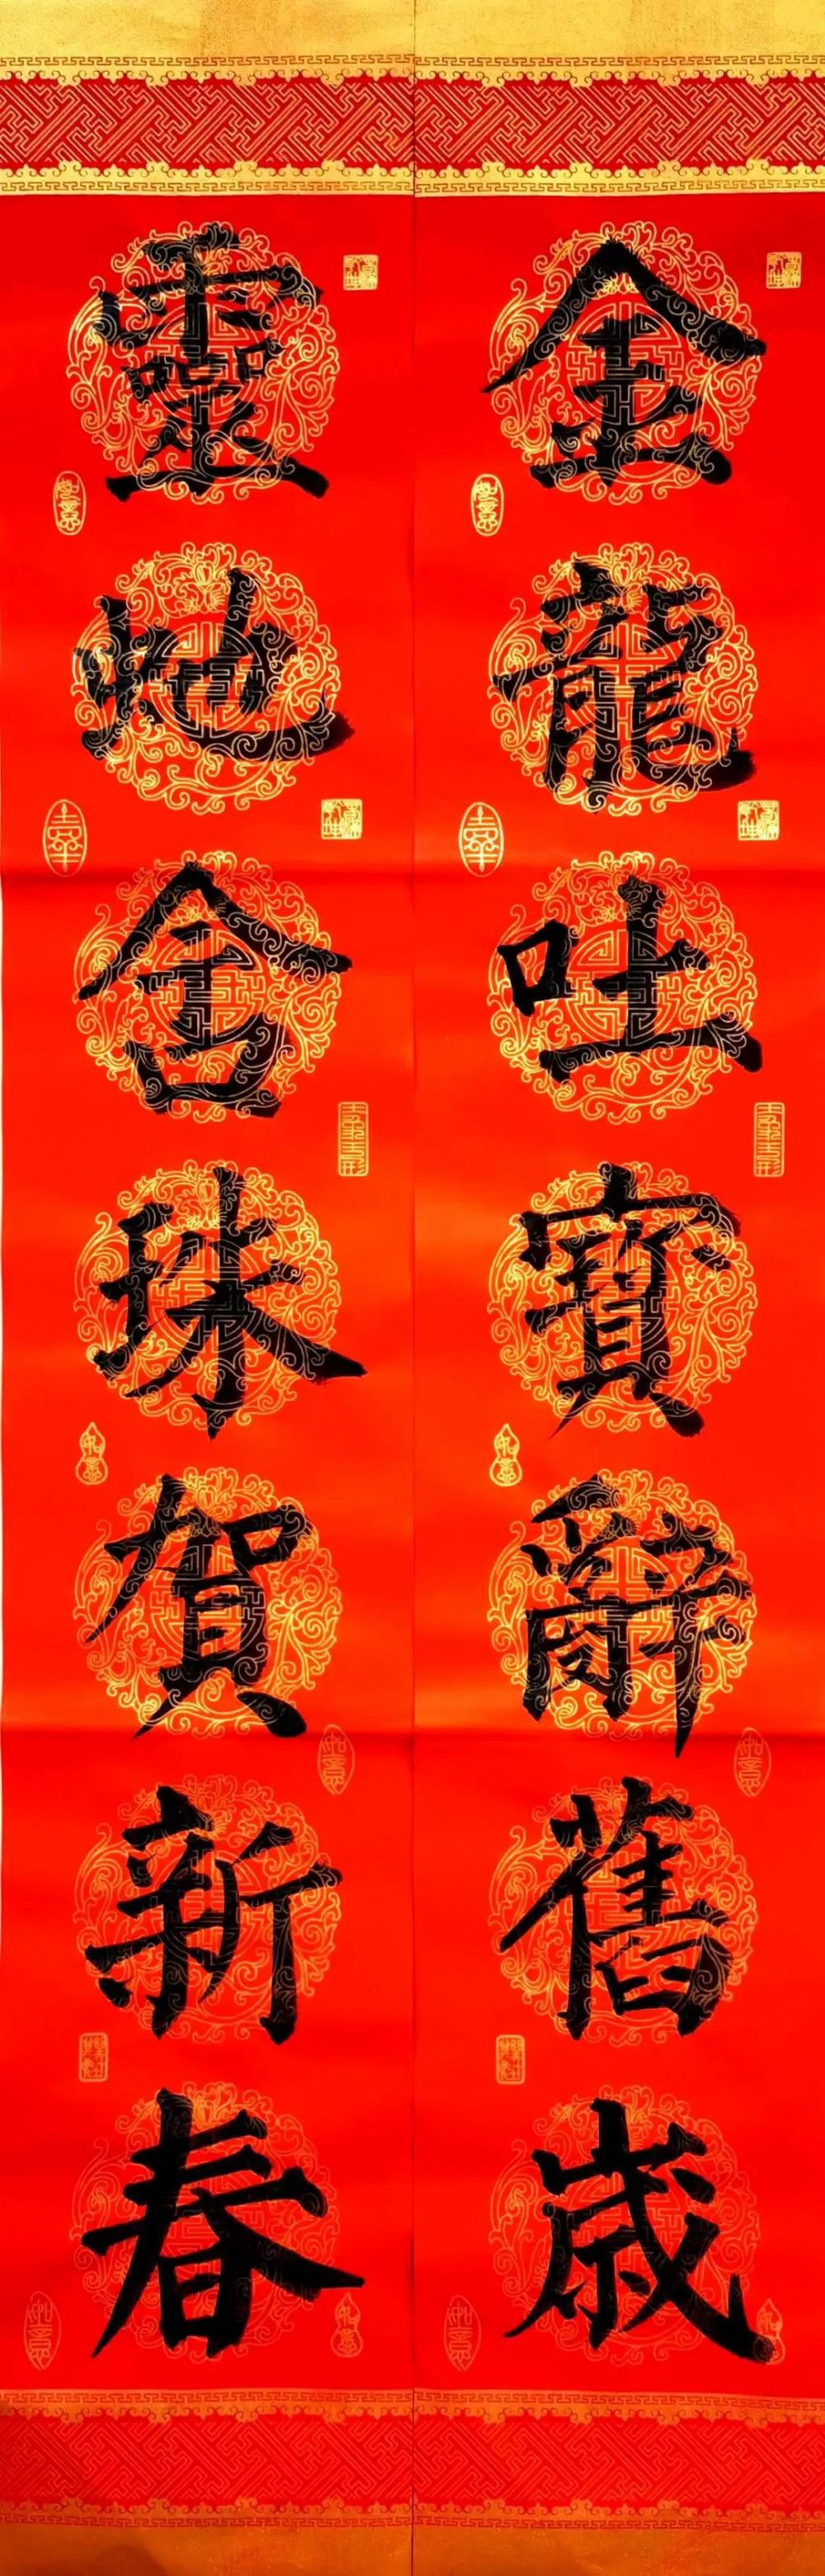 金龍吐寶辭舊歲
靈蛇含珠賀新春